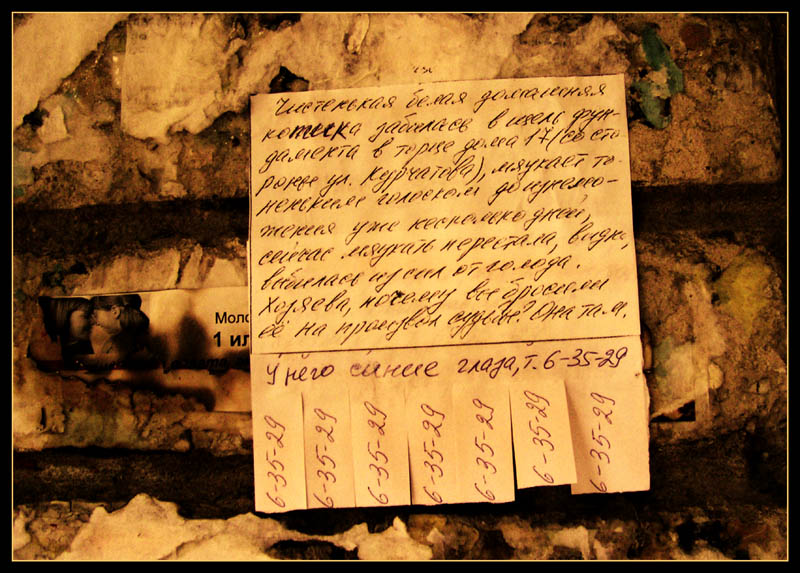 Чистенькая белая домашняя
котика забилась в щель фун-
дамента в торце дома 17 (со сто-
роны ул. Курчатова), мяукает то-
неньким голоском до изнемо-
жения уже несколько дней,
сейчас мяукать перестала, видно,
выбилась из сил от голода.
Хозяева, почему вы бросили
её на произвол судьбы? Она там.
У него синие глаза, т. 6-35-29
6-35-29
6-35-29
6-35-29
6-35-29
6-35-29
6-35-29
6-35-29
Моло
1 ил